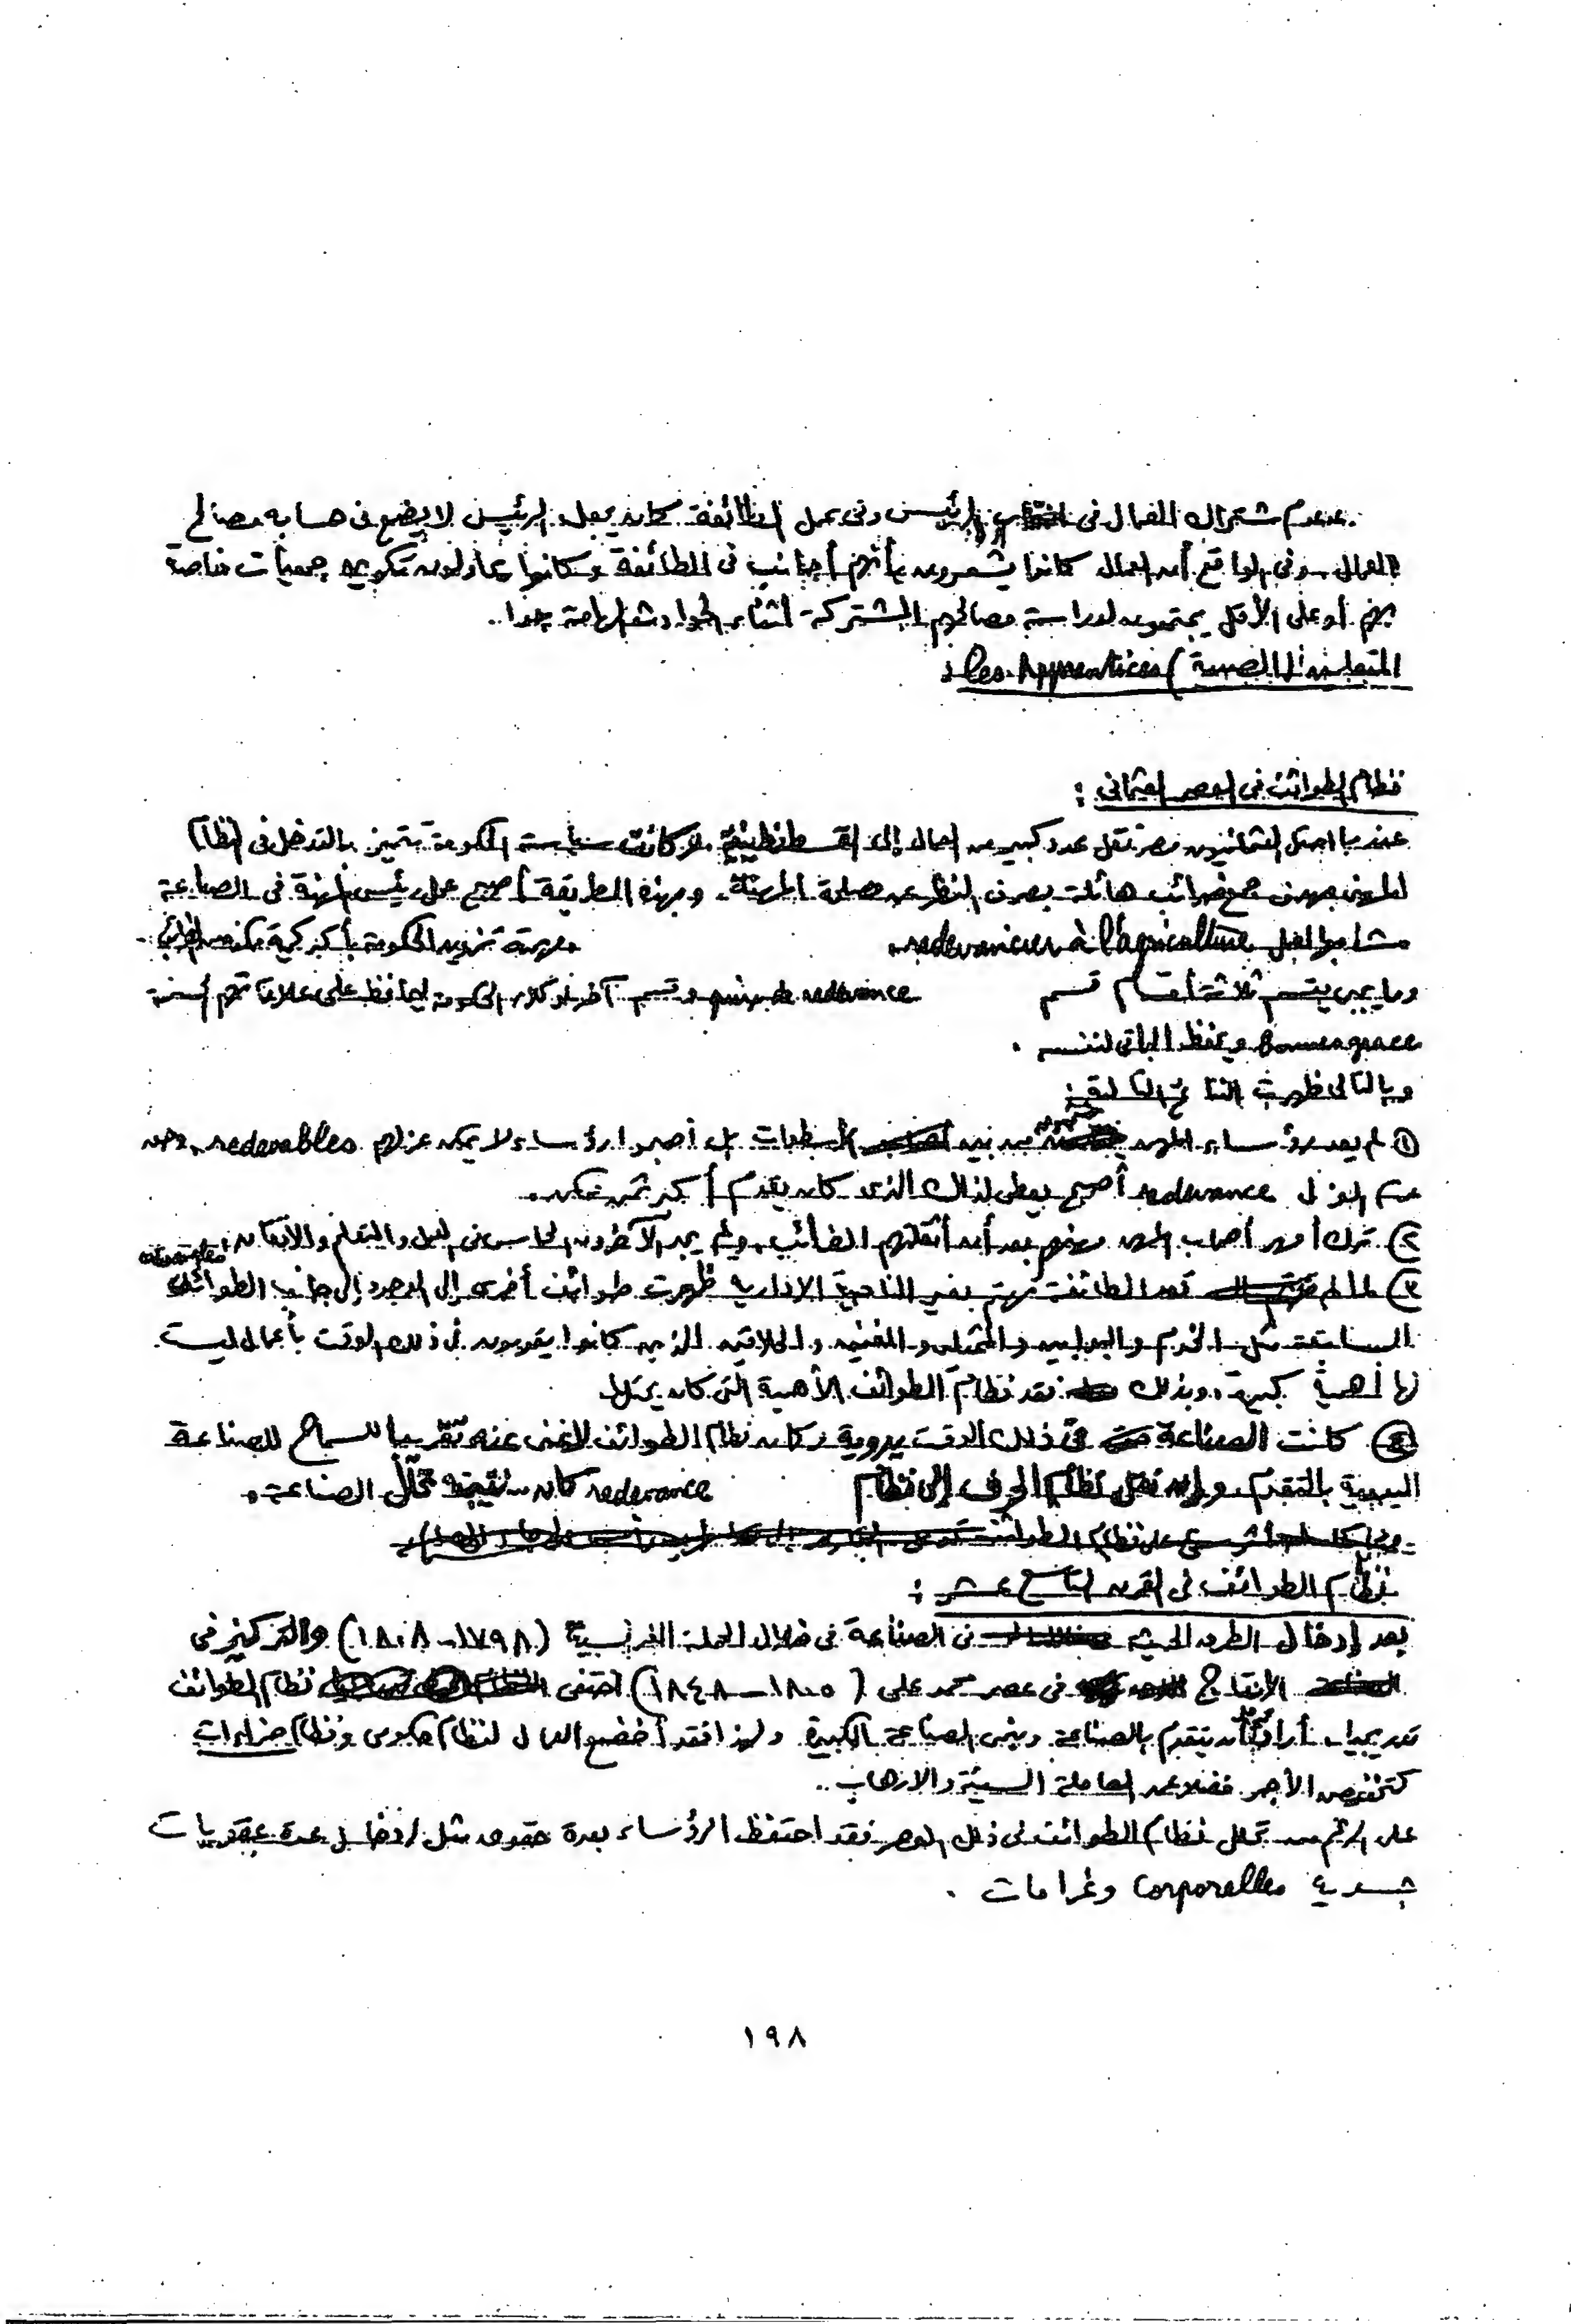 عدم اشتراك العمال فى انتخاب الرئيس وفى عمل الطائفة كان يجعل الرئيس لا يضع فى حسابه مصالح
العمال وفى الواقع أن العمال كانوا يشعرون بأنهم أجانب فى الطائفة وكانوا يحاولون تكوين جمعيات خاصة
بهم أو على الأقل يجتمعون لدراسة مصالحهم المشتركة أثناء الحوادث الهامة جدا..
المتعلمين (الصبية) les Apprentices :
نظام الطوائف فى العصر العثمانى :
عندما احتل العثمانيون مصر نقل عدد كبير من العمال إلى القسطنطينية وكانت سياسة الحكومة تتميز بالتدخل فى نظام
الطوائف بهدف جمع ضرائب هائلة بصرف النظر عن مصلحة المهنة. وبهذه الطريقة أصبح عمل رئيس المهنة فى الصناعة
مشابها لعمل redevancier à l'agriculture مهمته تزويد الحكومة بأكبر كمية ممكنة من الضرائب
وما يجبى يقسم ثلاثة أقسام قسم prise de redevance وقسم آخر لوكلاء الحكومة ليحافظ على علاقاتهم الحسنة
Bonne grace ويحفظ الباقى لنفسه .
وبالتالى ظهرت النتائج التالية :
١ لم يعد رؤساء المهن من بين الأسطوات بل أصبحوا رؤساء لا يمكن عزلهم redevables ومن
redevance أصبح يعطى لذلك الذى كان يقدم أكبر ثمن ممكن.
٢ ترك أمهر أصحاب المهن مهنهم بعد أن أثقلتهم الضرائب، ولم يجد الآخرون الحماس فى العمل والتعلم والإتقان
٣ لما لم تعد الطائفة تهتم بغير الناحية الإدارية ظهرت طوائف أخرى إلى الوجود إلى جانب الطوائف
السابقة مثل الخدم والبوابين والممثلين والمغنين والحلاقين الذين كانوا يقومون فى ذلك الوقت بأعمال ليست
لها أهمية كبيرة. وبذلك فقد نظام الطوائف الأهمية التى كان يمثلها
٤ كانت الصناعة فى ذلك الوقت يدوية وكان نظام الطوائف لا غنى عنه تقريبا للسماح للصناعة
اليدوية بالتقدم. ولأن تحول نظام الحرف إلى نظام redevance كان نتيجته تحلل الصناعة.
نظام الطوائف فى القرن التاسع عشر :
بعد إدخال الطرق الحديثة فى الصناعة فى خلال الحملة الفرنسية (١٧٩٨-١٨٠٨) والتركيز فى
الإنتاج فى عصر محمد على (١٨٠٥-١٨٤٨) اختفى نظام الطوائف
تدريجيا. أراد محمد على أن يتقدم بالصناعة وينمى الصناعة الكبيرة ولهذا فقد أخضع العمال لنظام حكومى ونظام جزاءات
كتخفيض الأجر فضلا عن المعاملة السيئة والإرهاب..
على الرغم من تحلل نظام الطوائف فى ذلك العصر فقد احتفظ الرؤساء بعدة حقوق مثل إدخال عدة عقوبات
جسدية corporelles وغرامات .
١٩٨